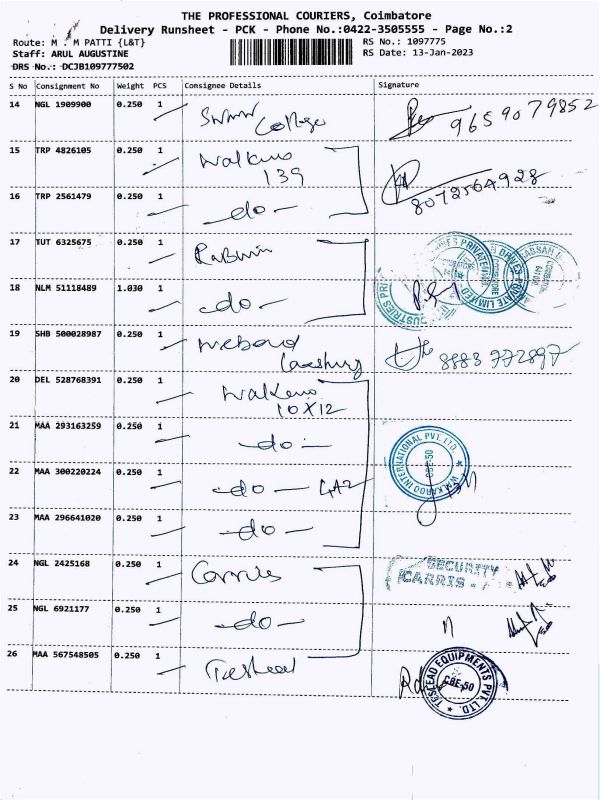 THE PROFESSIONAL COURIERS, Coimbatore
Delivery Runsheet - PCK - Phone No.:0422-3505555 - Page No.:2
Route: M . M PATTI {L&T}
RS No.: 1097775
Staff: ARUL AUGUSTINE
RS Date: 13-Jan-2023
DRS No.: DCJB109777502
S No Consignment No Weight PCS Consignee Details Signature
14 NGL 1909900 0.250 1
College
9659079852
15 TRP 4826105 0.250 1
139
16 TRP 2561479 0.250 1 -do-
8072564928
17 TUT 6325675 0.250 1
18 NLM 51118489 1.030 1 -do-
19 SHB 500028987 0.250 1
8883 772897
20 DEL 528768391 0.250 1
10X12
21 MAA 293163259 0.250 1 -do-
22 MAA 300220224 0.250 1 -do-
WALKAROO INTERNATIONAL PVT. LTD.
CBE-50
23 MAA 296641020 0.250 1 -do-
24 NGL 2425168 0.250 1
SECURITY
CARRIS
25 NGL 6921177 0.250 1 -do-
26 MAA 567548505 0.250 1
TESCEAD EQUIPMENTS PVT. LTD.
CBE-50